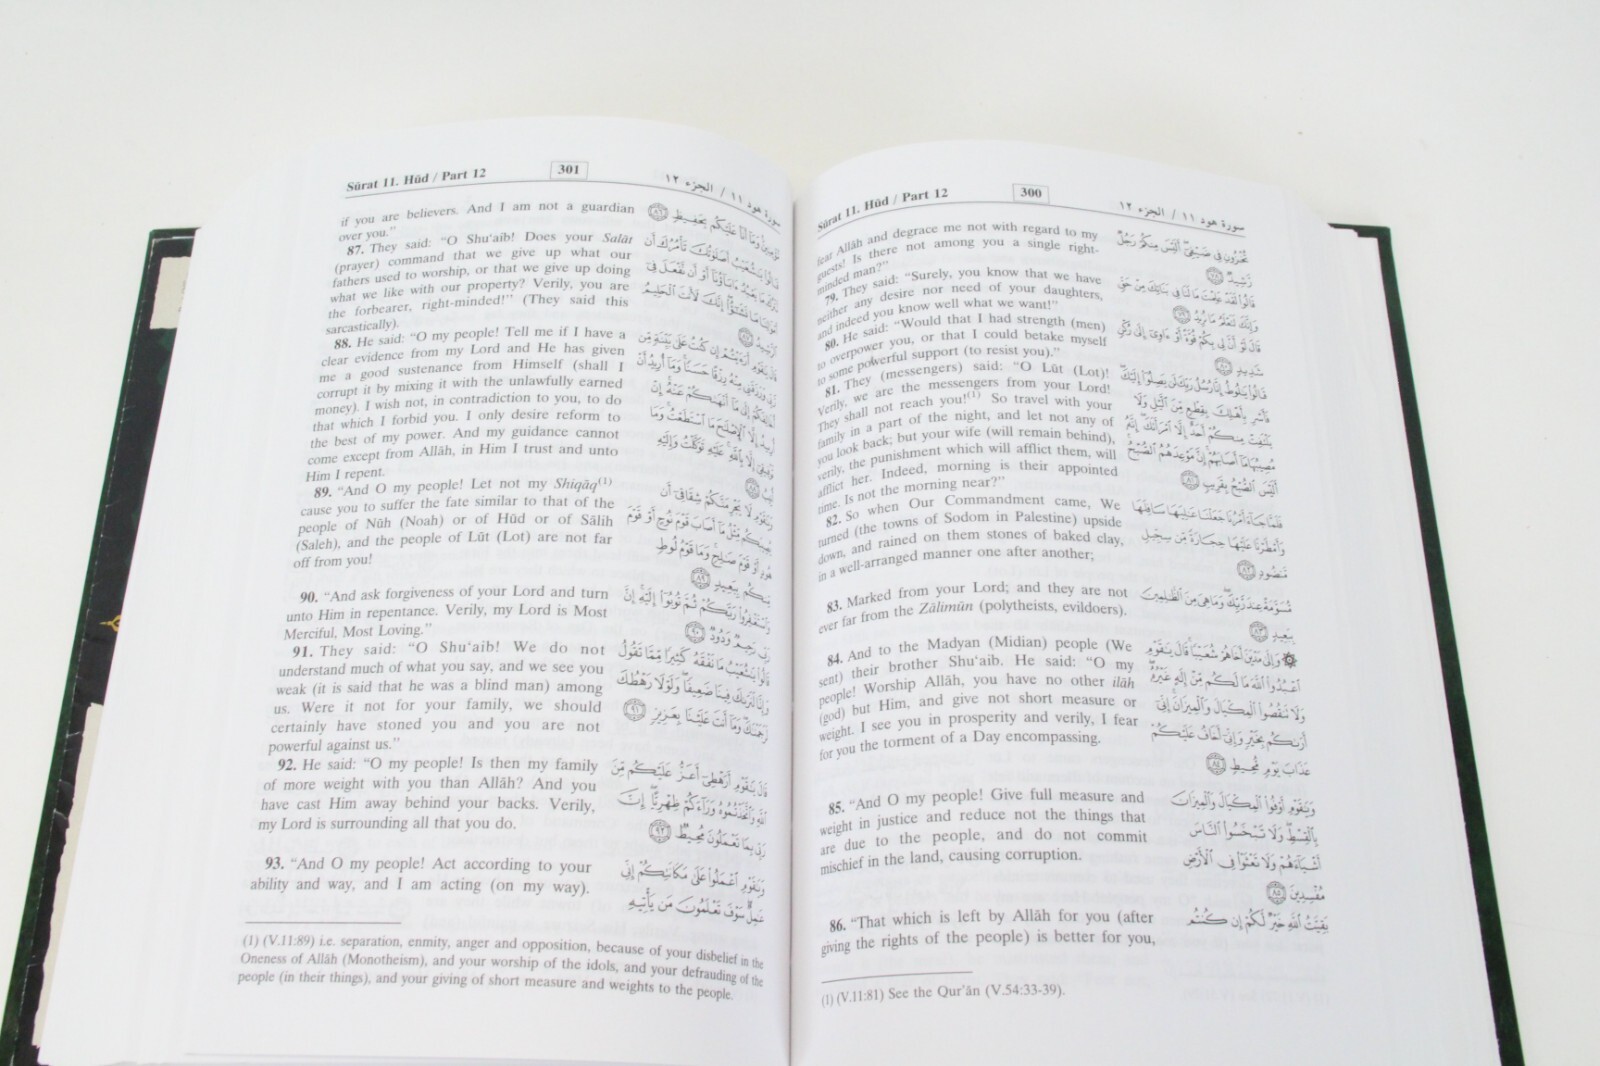 Sūrat 11. Hūd / Part 12
300
سورة هود ١١ / الجزء ١٢
fear Allāh and degrace me not with regard to my
guests! Is there not among you a single right-
minded man?"
79. They said: "Surely, you know that we have
neither any desire nor need of your daughters,
and indeed you know well what we want!"
80. He said: "Would that I had strength (men)
to overpower you, or that I could betake myself
to some powerful support (to resist you)."
81. They (messengers) said: "O Lūt (Lot)!
Verily, we are the messengers from your Lord!
They shall not reach you!(1) So travel with your
family in a part of the night, and let not any of
you look back; but your wife (will remain behind),
verily, the punishment which will afflict them, will
afflict her. Indeed, morning is their appointed
time. Is not the morning near?"
82. So when Our Commandment came, We
turned (the towns of Sodom in Palestine) upside
down, and rained on them stones of baked clay,
in a well-arranged manner one after another;
83. Marked from your Lord; and they are not
ever far from the Zālimūn (polytheists, evildoers).
84. And to the Madyan (Midian) people (We
sent) their brother Shu'aib. He said: "O my
people! Worship Allāh, you have no other ilāh
(god) but Him, and give not short measure or
weight. I see you in prosperity and verily, I fear
for you the torment of a Day encompassing.
85. "And O my people! Give full measure and
weight in justice and reduce not the things that
are due to the people, and do not commit
mischief in the land, causing corruption.
86. "That which is left by Allāh for you (after
giving the rights of the people) is better for you,
تُخْزُونِ فِي ضَيْفِي أَلَيْسَ مِنكُمْ رَجُلٌ
رَّشِيدٌ ٧٨
قَالُوا لَقَدْ عَلِمْتَ مَا لَنَا فِي بَنَاتِكَ مِنْ حَقٍّ
وَإِنَّكَ لَتَعْلَمُ مَا نُرِيدُ ٧٩
قَالَ لَوْ أَنَّ لِي بِكُمْ قُوَّةً أَوْ ءَاوِي إِلَى رُكْنٍ
شَدِيدٍ ٨٠
قَالُوا يَا لُوطُ إِنَّا رُسُلُ رَبِّكَ لَن يَصِلُوا إِلَيْكَ
فَأَسْرِ بِأَهْلِكَ بِقِطْعٍ مِّنَ اللَّيْلِ وَلَا
يَلْتَفِتْ مِنكُمْ أَحَدٌ إِلَّا امْرَأَتَكَ إِنَّهُ
مُصِيبُهَا مَا أَصَابَهُمْ إِنَّ مَوْعِدَهُمُ الصُّبْحُ
أَلَيْسَ الصُّبْحُ بِقَرِيبٍ ٨١
فَلَمَّا جَاءَ أَمْرُنَا جَعَلْنَا عَالِيَهَا سَافِلَهَا
وَأَمْطَرْنَا عَلَيْهَا حِجَارَةً مِّن سِجِّيلٍ
مَّنضُودٍ ٨٢
مُّسَوَّمَةً عِندَ رَبِّكَ وَمَا هِيَ مِنَ الظَّالِمِينَ
بِبَعِيدٍ ٨٣
۞ وَإِلَى مَدْيَنَ أَخَاهُمْ شُعَيْبًا قَالَ يَا قَوْمِ
اعْبُدُوا اللَّهَ مَا لَكُم مِّنْ إِلَهٍ غَيْرُهُ
وَلَا تَنقُصُوا الْمِكْيَالَ وَالْمِيزَانَ إِنِّي
أَرَاكُم بِخَيْرٍ وَإِنِّي أَخَافُ عَلَيْكُمْ
عَذَابَ يَوْمٍ مُّحِيطٍ ٨٤
وَيَا قَوْمِ أَوْفُوا الْمِكْيَالَ وَالْمِيزَانَ
بِالْقِسْطِ وَلَا تَبْخَسُوا النَّاسَ
أَشْيَاءَهُمْ وَلَا تَعْثَوْا فِي الْأَرْضِ
مُفْسِدِينَ ٨٥
بَقِيَّتُ اللَّهِ خَيْرٌ لَّكُمْ إِن كُنتُم
(1) (V.11:81) See the Qur'ān (V.54:33-39).
Sūrat 11. Hūd / Part 12
301
سورة هود ١١ / الجزء ١٢
if you are believers. And I am not a guardian
over you."
87. They said: "O Shu'aib! Does your Salāt
(prayer) command that we give up what our
fathers used to worship, or that we give up doing
what we like with our property? Verily, you are
the forbearer, right-minded!" (They said this
sarcastically).
88. He said: "O my people! Tell me if I have a
clear evidence from my Lord and He has given
me a good sustenance from Himself (shall I
corrupt it by mixing it with the unlawfully earned
money). I wish not, in contradiction to you, to do
that which I forbid you. I only desire reform to
the best of my power. And my guidance cannot
come except from Allāh, in Him I trust and unto
Him I repent.
89. "And O my people! Let not my Shiqāq(1)
cause you to suffer the fate similar to that of the
people of Nūh (Noah) or of Hūd or of Sālih
(Saleh), and the people of Lūt (Lot) are not far
off from you!
90. "And ask forgiveness of your Lord and turn
unto Him in repentance. Verily, my Lord is Most
Merciful, Most Loving."
91. They said: "O Shu'aib! We do not
understand much of what you say, and we see you
weak (it is said that he was a blind man) among
us. Were it not for your family, we should
certainly have stoned you and you are not
powerful against us."
92. He said: "O my people! Is then my family
of more weight with you than Allāh? And you
have cast Him away behind your backs. Verily,
my Lord is surrounding all that you do.
93. "And O my people! Act according to your
ability and way, and I am acting (on my way).
مُّؤْمِنِينَ وَمَا أَنَا عَلَيْكُم بِحَفِيظٍ ٨٦
قَالُوا يَا شُعَيْبُ أَصَلَوَاتُكَ تَأْمُرُكَ أَن
نَّتْرُكَ مَا يَعْبُدُ آبَاؤُنَا أَوْ أَن نَّفْعَلَ فِي
أَمْوَالِنَا مَا نَشَاءُ إِنَّكَ لَأَنتَ الْحَلِيمُ
الرَّشِيدُ ٨٧
قَالَ يَا قَوْمِ أَرَأَيْتُمْ إِن كُنتُ عَلَى بَيِّنَةٍ مِّن
رَّبِّي وَرَزَقَنِي مِنْهُ رِزْقًا حَسَنًا وَمَا أُرِيدُ أَنْ
أُخَالِفَكُمْ إِلَى مَا أَنْهَاكُمْ عَنْهُ إِنْ
أُرِيدُ إِلَّا الْإِصْلَاحَ مَا اسْتَطَعْتُ وَمَا
تَوْفِيقِي إِلَّا بِاللَّهِ عَلَيْهِ تَوَكَّلْتُ وَإِلَيْهِ
أُنِيبُ ٨٨
وَيَا قَوْمِ لَا يَجْرِمَنَّكُمْ شِقَاقِي أَن
يُصِيبَكُم مِّثْلُ مَا أَصَابَ قَوْمَ نُوحٍ أَوْ قَوْمَ
هُودٍ أَوْ قَوْمَ صَالِحٍ وَمَا قَوْمُ لُوطٍ
مِّنكُم بِبَعِيدٍ ٨٩
وَاسْتَغْفِرُوا رَبَّكُمْ ثُمَّ تُوبُوا إِلَيْهِ إِنَّ
رَبِّي رَحِيمٌ وَدُودٌ ٩٠
قَالُوا يَا شُعَيْبُ مَا نَفْقَهُ كَثِيرًا مِّمَّا تَقُولُ
وَإِنَّا لَنَرَاكَ فِينَا ضَعِيفًا وَلَوْلَا رَهْطُكَ
لَرَجَمْنَاكَ وَمَا أَنتَ عَلَيْنَا بِعَزِيزٍ ٩١
قَالَ يَا قَوْمِ أَرَهْطِي أَعَزُّ عَلَيْكُم مِّنَ
اللَّهِ وَاتَّخَذْتُمُوهُ وَرَاءَكُمْ ظِهْرِيًّا إِنَّ
رَبِّي بِمَا تَعْمَلُونَ مُحِيطٌ ٩٢
وَيَا قَوْمِ اعْمَلُوا عَلَى مَكَانَتِكُمْ إِنِّي
عَامِلٌ سَوْفَ تَعْلَمُونَ مَن يَأْتِيهِ
(1) (V.11:89) i.e. separation, enmity, anger and opposition, because of your disbelief in the
Oneness of Allāh (Monotheism), and your worship of the idols, and your defrauding of the
people (in their things), and your giving of short measure and weights to the people.